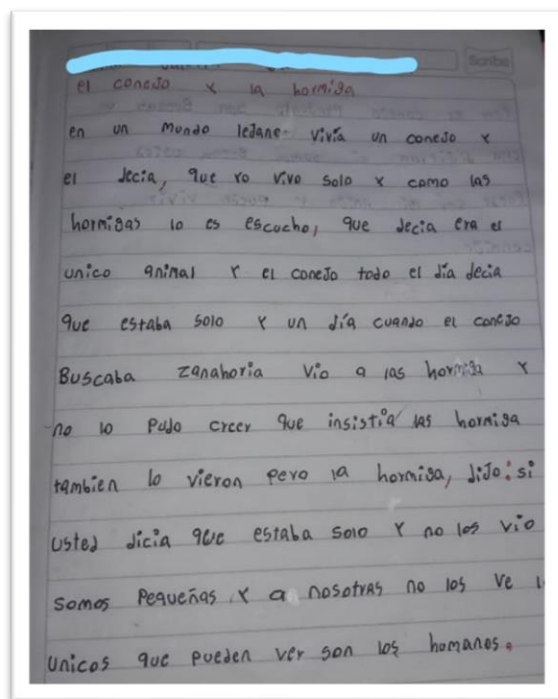 Scribe
el conejo y la hormiga
en un mundo lejano vivía un conejo y
el decia, que yo vivo solo y como las
hormigas lo es escucho, que decia era el
unico animal y el conejo todo el día decia
que estaba solo y un día cuando el conejo
Buscaba zanahoria vio a las hormiga y
no lo pudo creer que insistía las hormiga
tambien lo vieron pero la hormiga, dijo: si
usted dicia que estaba solo y no los vio
somos pequeñas y a nosotras no los ve
unicos que pueden ver son los humanos.